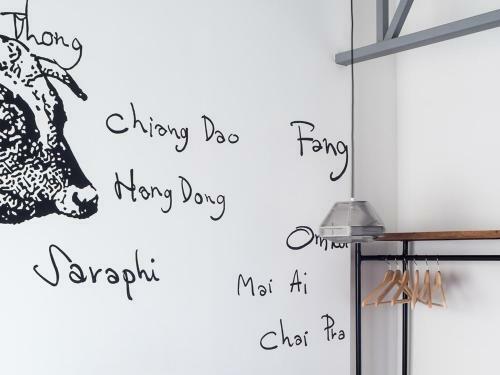 Thong
Chiang Dao
Fang
Hang Dong
Saraphi
Mai Ai
Chai Pra